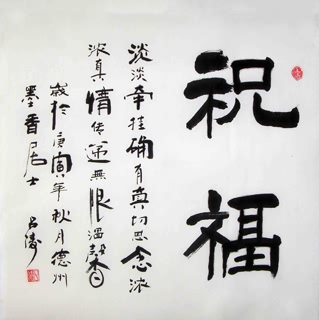 祝福
淡淡牵挂确有真切思念浓
浓真情传递無限温馨
歲於庚寅年秋月德州
墨香居士